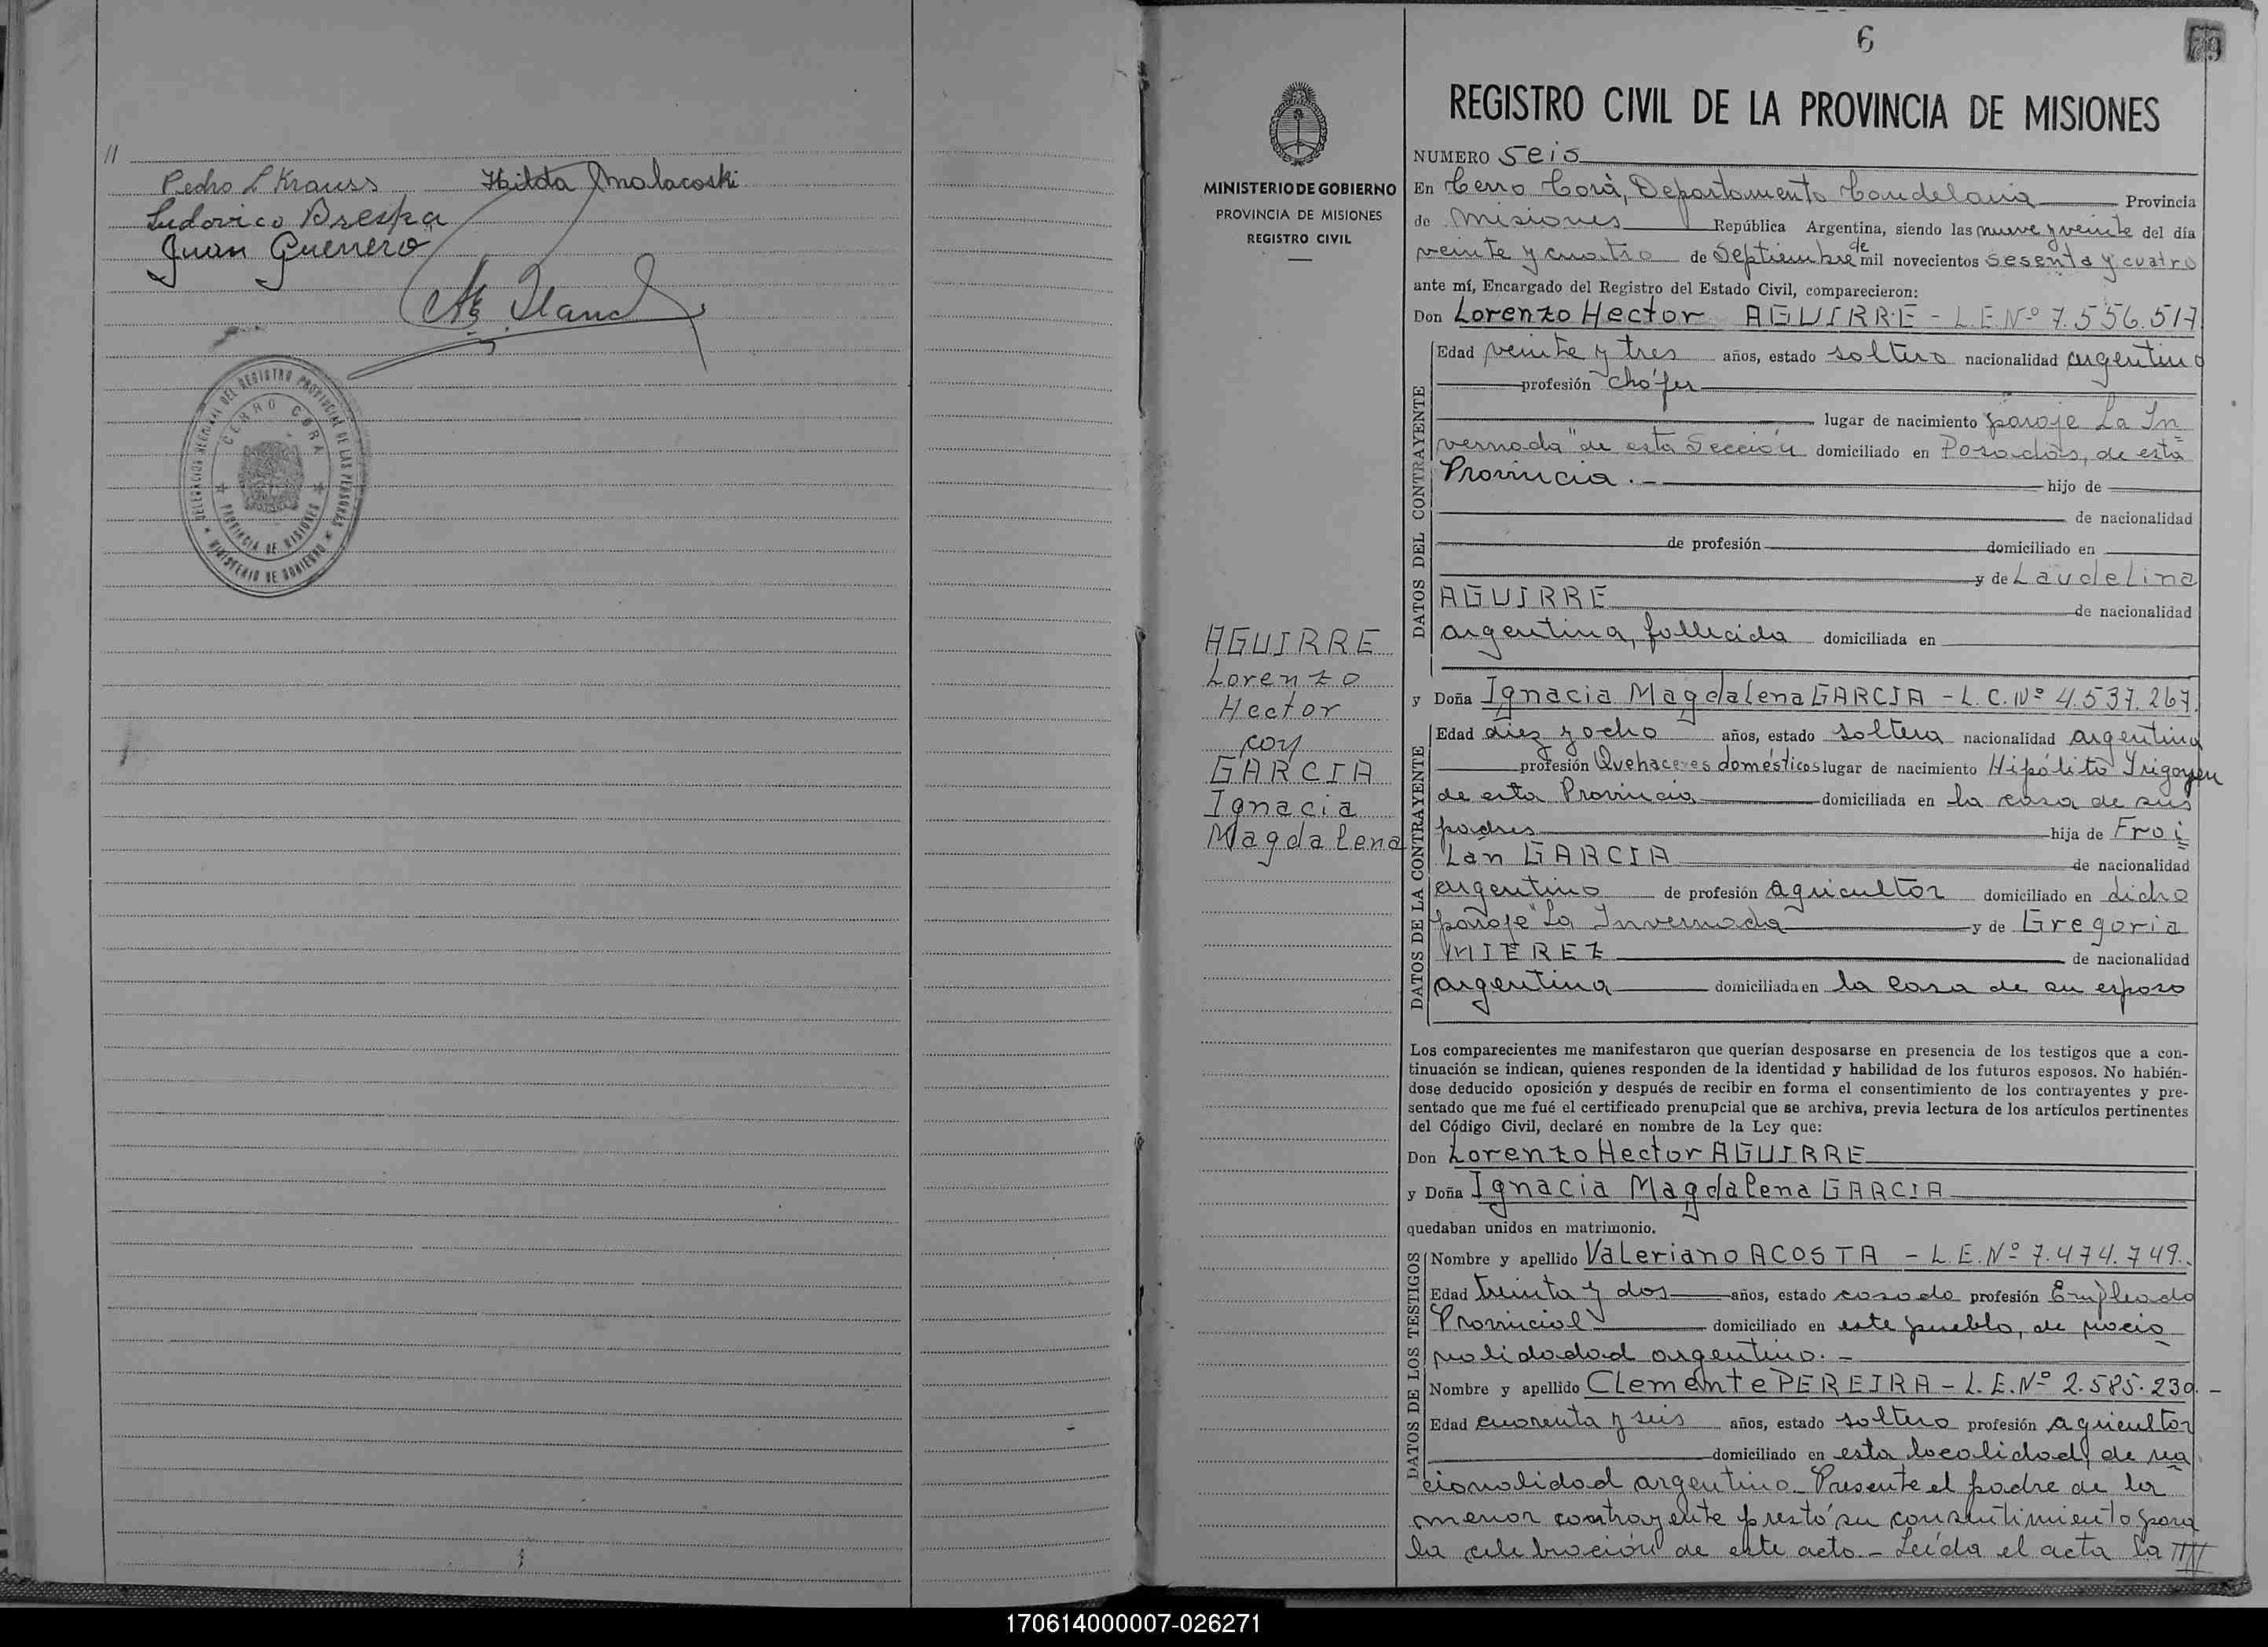 //
Pedro L Krauss Hilda Smolacoski
Ludovico Brespa
Juan Guerrero
DELEGACION DEL REGISTRO PROVINCIAL DE LAS PERSONAS
CERRO CORA
PROVINCIA DE MISIONES
MINISTERIO DE GOBIERNO
6
REGISTRO CIVIL DE LA PROVINCIA DE MISIONES
MINISTERIO DE GOBIERNO
PROVINCIA DE MISIONES
REGISTRO CIVIL
AGUIRRE
Lorenzo
Hector
con
GARCIA
Ignacia
Magdalena
NUMERO Seis
En Cerro Corá, Departamento Candelaria Provincia
de Misiones República Argentina, siendo las nueve y veinte del día
veinte y cuatro de Septiembre de mil novecientos sesenta y cuatro
ante mí, Encargado del Registro del Estado Civil, comparecieron:
Don Lorenzo Hector AGUIRRE - L.E.Nº 7.556.517
DATOS DEL CONTRAYENTE
Edad veinte y tres años, estado soltero nacionalidad argentino
profesión chófer
lugar de nacimiento paraje La In
vernada" de esta Sección domiciliado en Posadas, de esta
Provincia.- hijo de
de nacionalidad
de profesión domiciliado en
y de Laudelina
AGUIRRE de nacionalidad
argentina, fallecida domiciliada en
y Doña Ignacia Magdalena GARCIA - L.C.Nº 4.537.267.
DATOS DE LA CONTRAYENTE
Edad diez y ocho años, estado soltera nacionalidad argentina
profesión Quehaceres domésticos lugar de nacimiento Hipólito Yrigoyen
de esta Provincia domiciliada en la casa de sus
padres hija de Froi
lan GARCIA de nacionalidad
argentino de profesión agricultor domiciliado en dicho
paraje "La Invernada y de Gregoria
MIEREZ de nacionalidad
argentina domiciliada en la casa de su esposo
Los comparecientes me manifestaron que querían desposarse en presencia de los testigos que a con-
tinuación se indican, quienes responden de la identidad y habilidad de los futuros esposos. No habién-
dose deducido oposición y después de recibir en forma el consentimiento de los contrayentes y pre-
sentado que me fué el certificado prenupcial que se archiva, previa lectura de los artículos pertinentes
del Código Civil, declaré en nombre de la Ley que:
Don Lorenzo Hector AGUIRRE
y Doña Ignacia Magdalena GARCIA
quedaban unidos en matrimonio.
DATOS DE LOS TESTIGOS
Nombre y apellido Valeriano ACOSTA - L.E.Nº 7.474.749.
Edad treinta y dos años, estado casado profesión Empleado
Provincial domiciliado en este pueblo, de nacio
nalidad argentino.-
Nombre y apellido Clemente PEREIRA - L.E.Nº 2.585.230.-
Edad cuarenta y seis años, estado soltero profesión agricultor
domiciliado en esta localidad, de na
cionalidad argentino. Presente el padre de la
menor contrayente prestó su consentimiento para
la celebración de este acto.- Leída el acta la ////
170614000007-026271